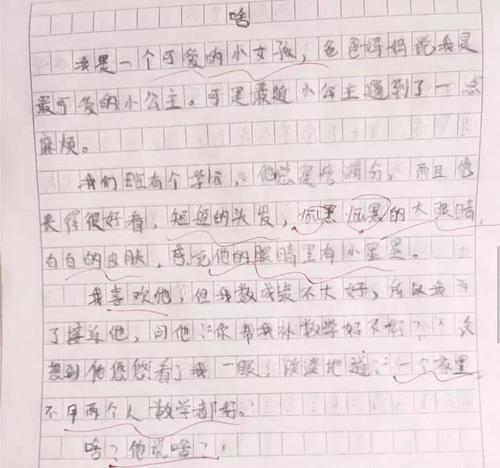 啥
我是一个可爱的小女孩，爸爸妈妈说我是
最可爱的小公主。可是最近小公主遇到了一点
麻烦。
我们班有个学霸，他总是考满分，而且他
长得很好看，短短的头发，黑黑的大眼睛，
白白的皮肤，感觉他的眼睛里有小星星。
我喜欢他，但我数成绩不大好，所以我为
了接近他，问他：“你帮我补数学好不好？”没
想到他悠悠看了我一眼，淡淡地道：“一个家里
不用两个人数学都好。
啥？他说啥？